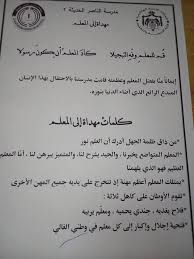 مدرسة الناصر الحديثة ٢
مهداة إلى المعلم
قم للمعلم وفه التبجيلا كاد المعلم أن يكون رسولا
إيماناً منا بفضل المعلم وعظمته قامت مدرستنا بالاحتفال بهذا الإنسان
المبدع الرائع الذي أضاء الدنيا بنوره.
كلمات مهداة إلى المعلم
من ذاق ظلمة الجهل أدرك أن العلم نور
المعلم المتواضع يخبرنا، والجيد يشرح لنا، والمتميز يبرهن لنا، أما المعلم
العظيم فهو الذي يلهمنا.
يمتلك المعلم أعظم مهنة إذ تتخرج على يديه جميع المهن الأخرى
تقوم الأوطان على كاهل ثلاثة:
فلاح يغذيه، جندي يحميه، ومعلم يربيه
فتحية إجلال وإكبار إلى كل معلم في وطني الغالي